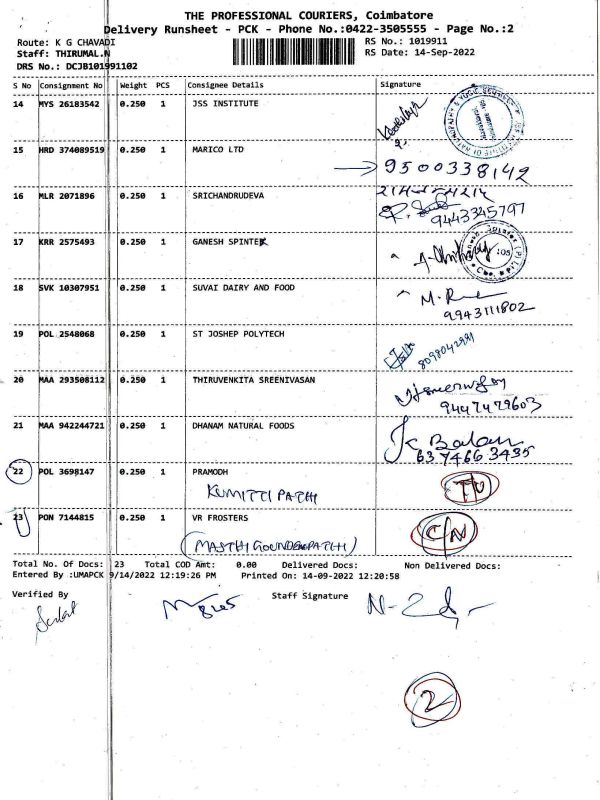 THE PROFESSIONAL COURIERS, Coimbatore
Delivery Runsheet - PCK - Phone No.:0422-3505555 - Page No.:2
Route: K G CHAVADI RS No.: 1019911
Staff: THIRUMAL.N RS Date: 14-Sep-2022
DRS No.: DCJB101991102
S No Consignment No Weight PCS Consignee Details Signature
14 MYS 26183542 0.250 1 JSS INSTITUTE
15 HRD 374089519 0.250 1 MARICO LTD
9500338142
16 MLR 2071896 0.250 1 SRICHANDRUDEVA
9443345797
17 KRR 2575493 0.250 1 GANESH SPINTEX
18 SVK 10307951 0.250 1 SUVAI DAIRY AND FOOD
9943111802
19 POL 2548068 0.250 1 ST JOSHEP POLYTECH
8098042991
20 MAA 293508112 0.250 1 THIRUVENKITA SREENIVASAN
9447479603
21 MAA 942244721 0.250 1 DHANAM NATURAL FOODS
K Balan
637466 3435
22 POL 3698147 0.250 1 PRAMODH
KUMITTI PATHI
23 PON 7144815 0.250 1 VR FROSTERS
C/N
(MASTHIGOUNDENPATHI)
Total No. Of Docs: 23 Total COD Amt: 0.00 Delivered Docs: Non Delivered Docs:
Entered By :UMAPCK 9/14/2022 12:19:26 PM Printed On: 14-09-2022 12:20:58
Verified By Staff Signature
2